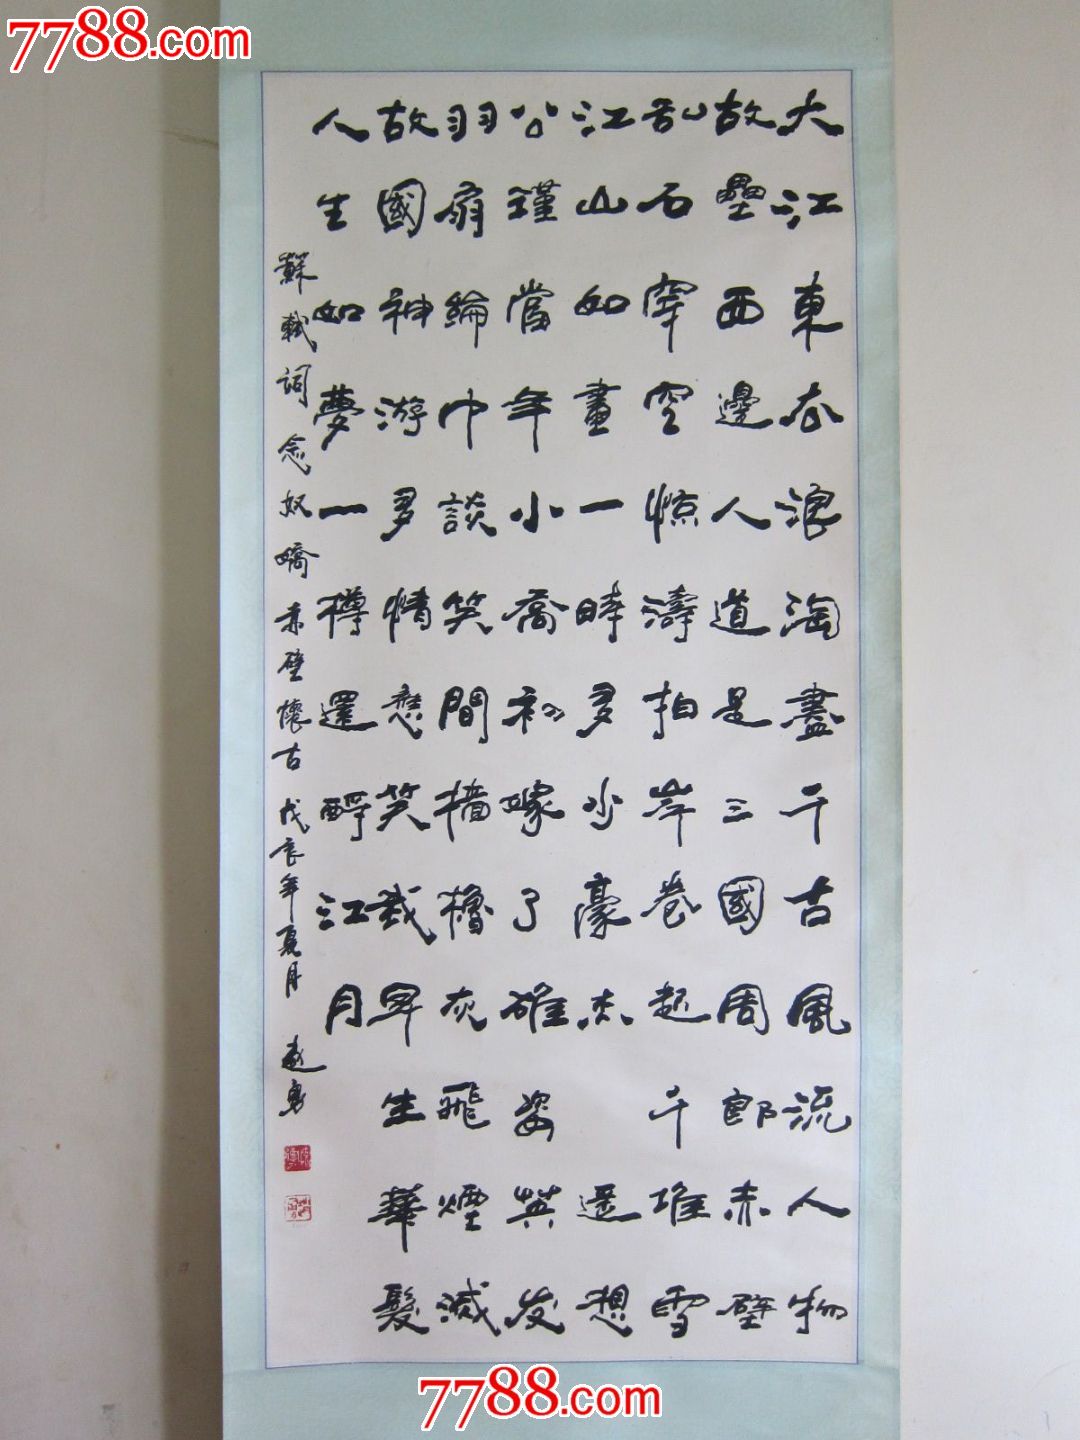 7788.com
大江東去浪淘盡千古風流人物
故壘西邊人道是三國周郎赤壁
乱石穿空惊濤拍岸卷起千堆雪
江山如畫一時多少豪杰 遥想
公瑾當年小喬初嫁了雄姿英发
羽扇綸巾談笑間檣櫓灰飛煙滅
故國神游多情應笑我早生華髮
人生如夢一樽還酹江月
蘇軾詞念奴嬌赤壁懷古 戊辰年夏月
7788.com